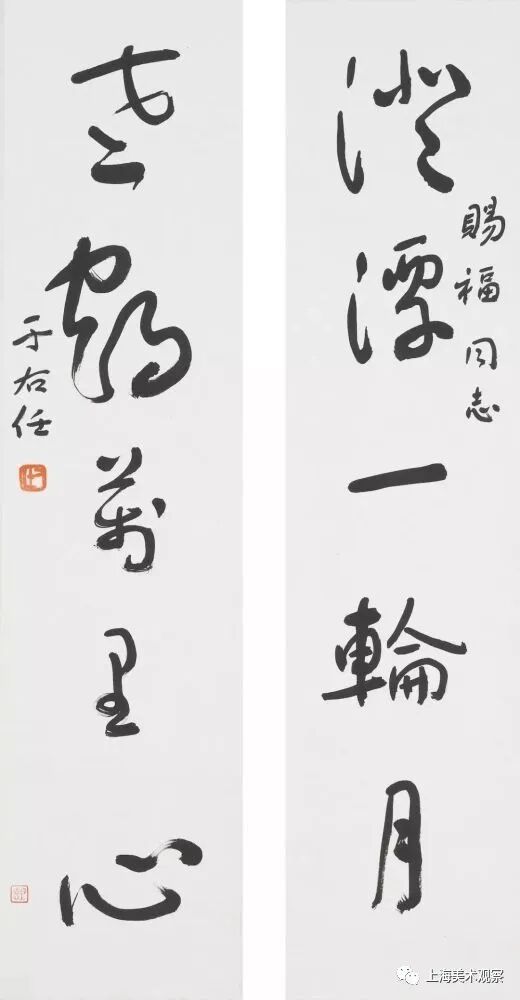 賜福同志
澄潭一輪月
老鶴萬里心
于右任
上海美术观察